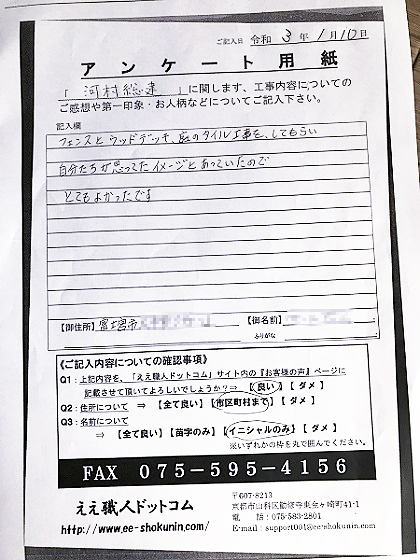 ご記入日 令和 3 年 1 月 10 日
アンケート用紙
「 河村総建 」に関します、工事内容についての
ご感想や第一印象・お人柄などについてご記入下さい。
記入欄
フェンスとウッドデッキ、庭のタイル工事を、してもらい
自分たちが思ってたイメージとあっていたので
とてもよかったです
【御住所】富士宮市
【御名前】
ふりがな
《ご記入内容についての確認事項》
Q1：上記内容を、「ええ職人ドットコム」サイト内の『お客様の声』ページに
記載させて頂いてよろしいでしょうか？⇒ 【良い】【ダメ】
Q2：住所について ⇒ 【全て良い】【市区町村まで】【ダメ】
Q3：名前について
⇒ 【全て良い】【苗字のみ】【イニシャルのみ】【ダメ】
※いずれかの枠を丸で囲んでください。
FAX 075-595-4156
ええ職人ドットコム
http://www.ee-shokunin.com/
〒607-8213
京都市山科区勧修寺東金ヶ崎町41-1
電 話：075-583-2801
E-mail：support001@ee-shokunin.com